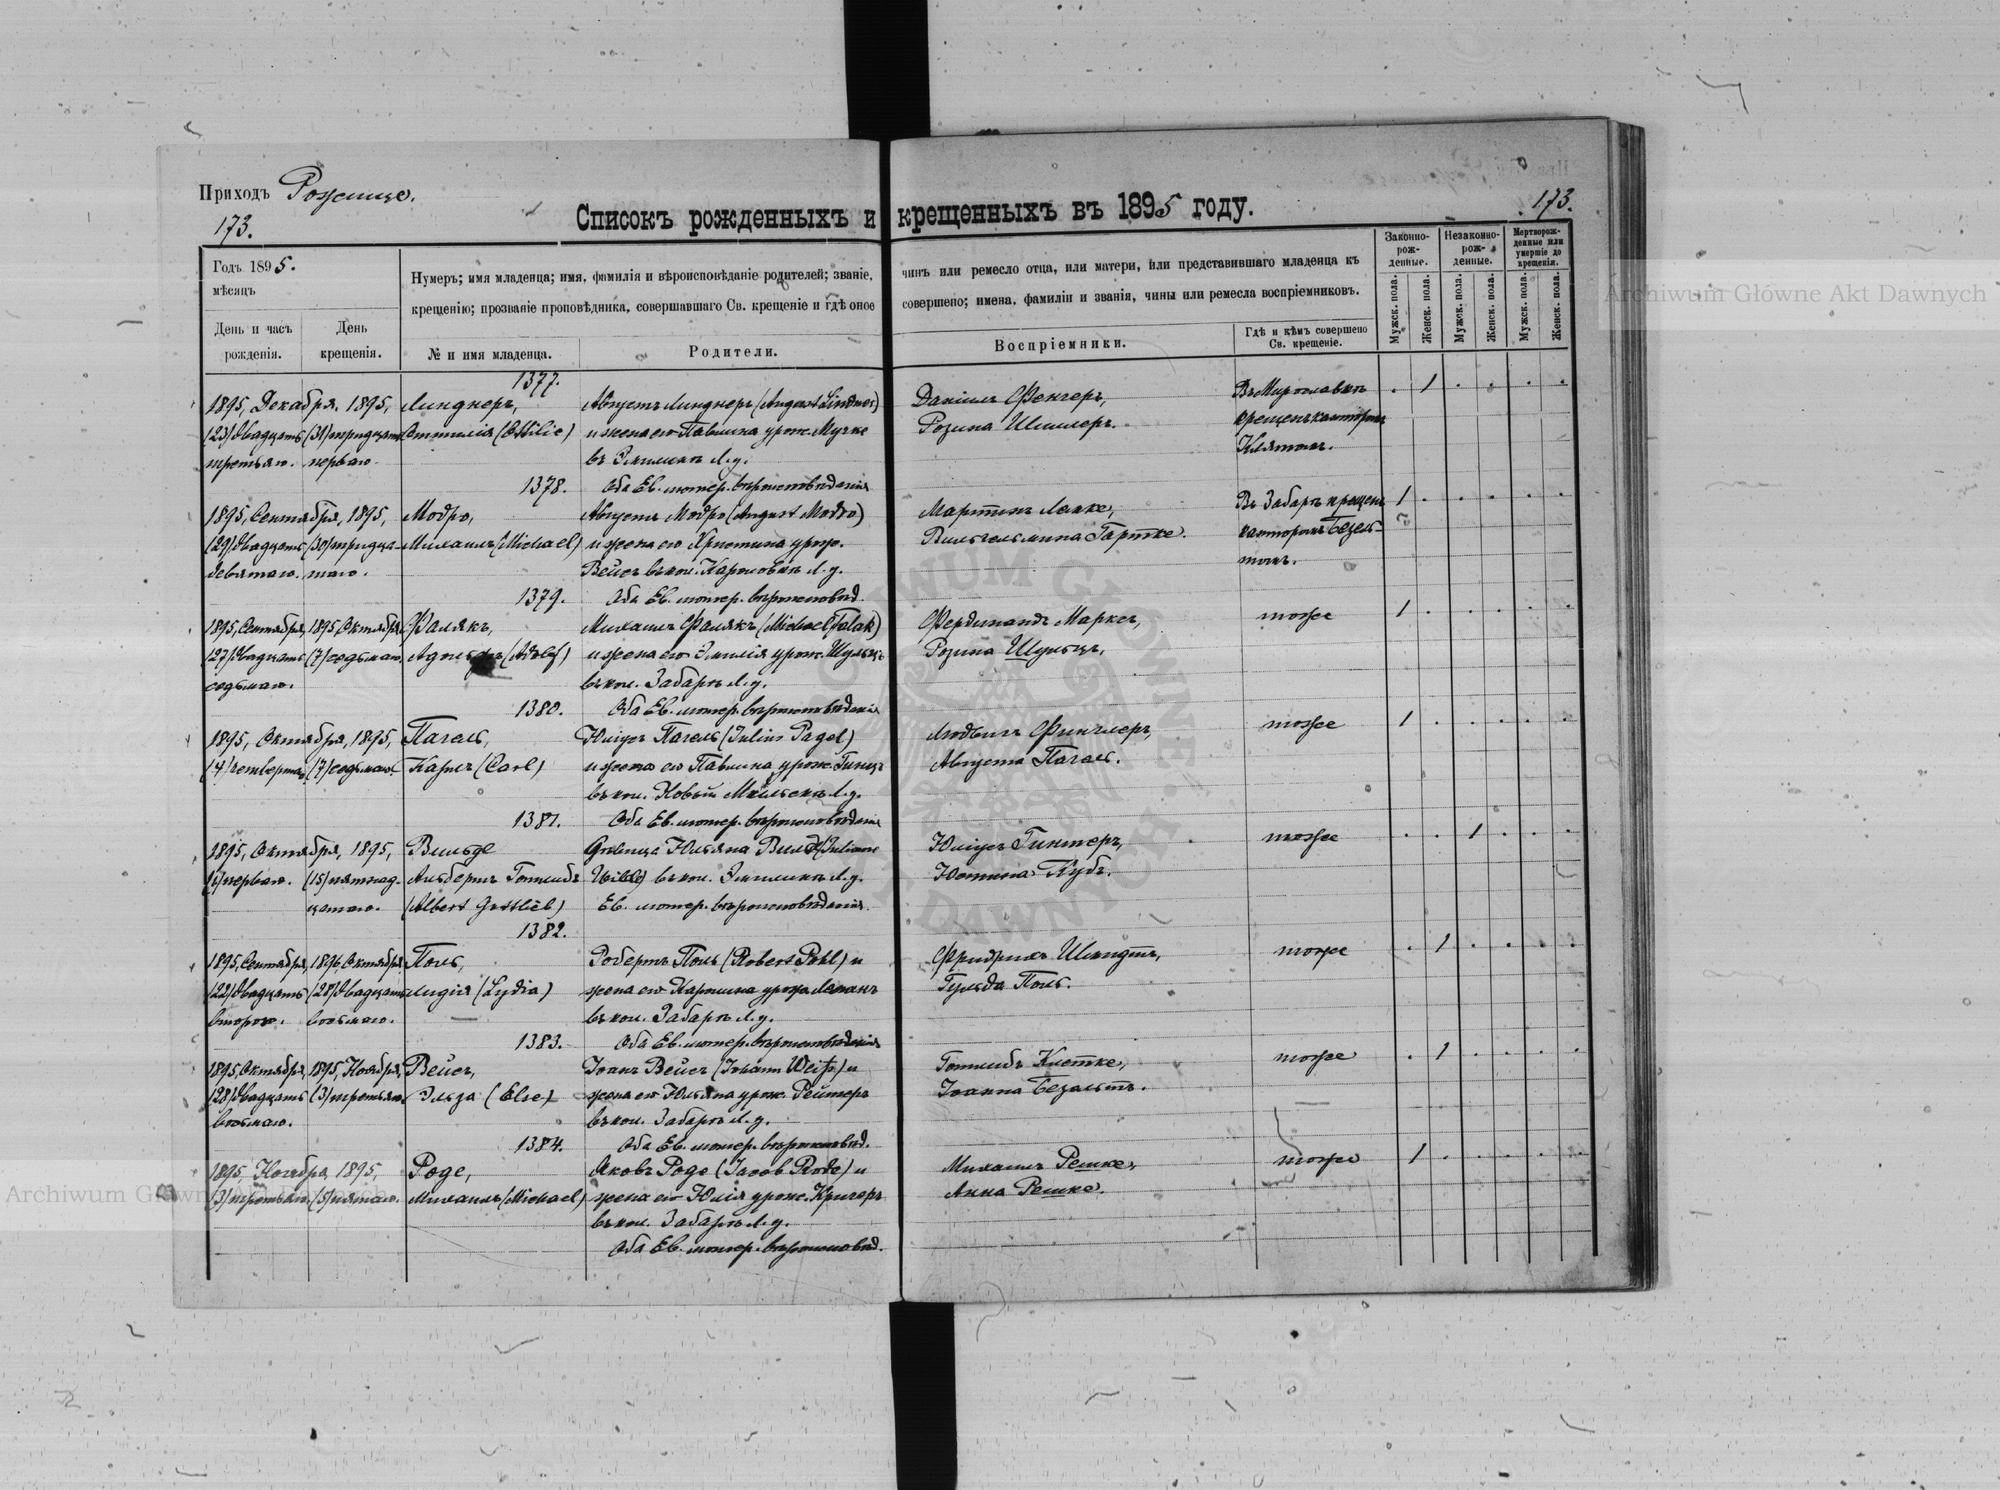 Приходъ Рожище.
173.
Списокъ рожденныхъ и крещенныхъ въ 1895 году.
173.
Годъ 1895.
мѣсяцъ
День и часъ рожденія.
День крещенія.
Нумеръ; имя младенца; имя, фамилія и вѣроисповѣданіе родителей; званіе, чинъ или ремесло отца, или матери, или представившаго младенца къ
крещенію; прозваніе проповѣдника, совершавшаго Св. крещеніе и гдѣ оное совершено; имена, фамиліи и званія, чины или ремесла воспріемниковъ.
№ и имя младенца.
Родители.
Воспріемники.
Гдѣ и кѣмъ совершено Св. крещеніе.
Законно-рож-денные.
Незаконно-рож-денные.
Мертворож-денные или умершіе до крещенія.
Мужск. пола.
Женск. пола.
Мужск. пола.
Женск. пола.
Мужск. пола.
Женск. пола.
1377.
1895, Декабря, 1895, Линднеръ, Августъ Линднеръ (August Lindner) Даніилъ Фенгеръ, Въ Мирославкѣ . 1 . . . .
(23) двадцать (31) тридцать Оттилія (Ottilie) и жена его Павлина урож. Мучке Розина Шиллеръ. крещенъ канторомъ
третьяго. перваго. въ Эмилинѣ Л.у. Клятомъ.
1378. Оба Ев. лютер. вѣроисповѣданія
1895, Сентября, 1895, Модро, Августъ Модро (August Modro) Мартинъ Лакке, Въ Забарѣ крещенъ 1 . . . . .
(29) двадцать (30) тридца- Михаилъ (Michael) и жена его Христина урож. Вильгельмина Гартке. канторомъ Безель-
девятаго. таго. Вейсъ въ кол. Кароловкѣ Л.у. томъ.
1379. Оба Ев. лютер. вѣроисповѣд.
1895, Сентября, 1895, Октября, Фалякъ, Михаилъ Фалякъ (Michael Falak) Фердинандъ Марксъ, тоже 1 . . . . .
(27) двадцать (7) седьмаго. Адольфъ (Adolf) и жена его Эмилія урож. Шульцъ Розина Шульцъ,
седьмаго. въ кол. Забарѣ Л.у.
1380. Оба Ев. лютер. вѣроисповѣданія
1895, Октября, 1895, Пагель, Юліусъ Пагель (Julius Pagel) Людвигъ Финглеръ, тоже 1 . . . . .
(4) четвертаго (7) седьмаго. Карлъ (Carl) и жена его Павлина урож. Гинцъ Августа Пагель.
въ кол. Новый Мыльскъ Л.у.
1381. Оба Ев. лютер. вѣроисповѣданія
1895, Октября, 1895, Вильде Дѣвица Юльяна Вильде (Juliane Юліусъ Гинтеръ, тоже . . 1 . . .
(1) перваго. (15) пятнад- Альбертъ Готлибъ Wilde) въ кол. Эмилинѣ Л.у. Юстина Кубъ.
цатаго. (Albert Gottlieb) Ев. лютер. вѣроисповѣданія.
1382.
1895, Сентября, 1896 Октября Поль, Робертъ Поль (Robert Pohl) и Фридрихъ Шмидтъ, тоже . 1 . . . .
(22) двадцать (28) двадцать Лидія (Lydia) жена его Каролина урож. Гульда Поль.
второго. восьмаго. въ кол. Забарѣ Л.у.
1383. Оба Ев. лютер. вѣроисповѣданія
1895, Октября, 1895, Ноября, Вейсъ, Іоанъ Вейсъ (Johann Weiß) и Готлибъ Клетке, тоже . 1 . . . .
(28) двадцать (3) третьяго. Эльза (Else) жена его Юльяна урож. Рейтеръ Іоанна Безельтъ.
восьмаго. въ кол. Забарѣ Л.у.
1384. Оба Ев. лютер. вѣроисповѣд.
1895, Ноября, 1895, Роде, Яковъ Роде (Jacob Rode) и Михаилъ Решке, тоже 1 . . . . .
(3) третьяго. (5) пятаго. Михаилъ (Michael) жена его Юлія урож. Кригеръ Анна Решке.
въ кол. Забарѣ Л.у.
Оба Ев. лютер. вѣроисповѣд.
Archiwum Główne Akt Dawnych
Archiwum Główne Akt Dawnych